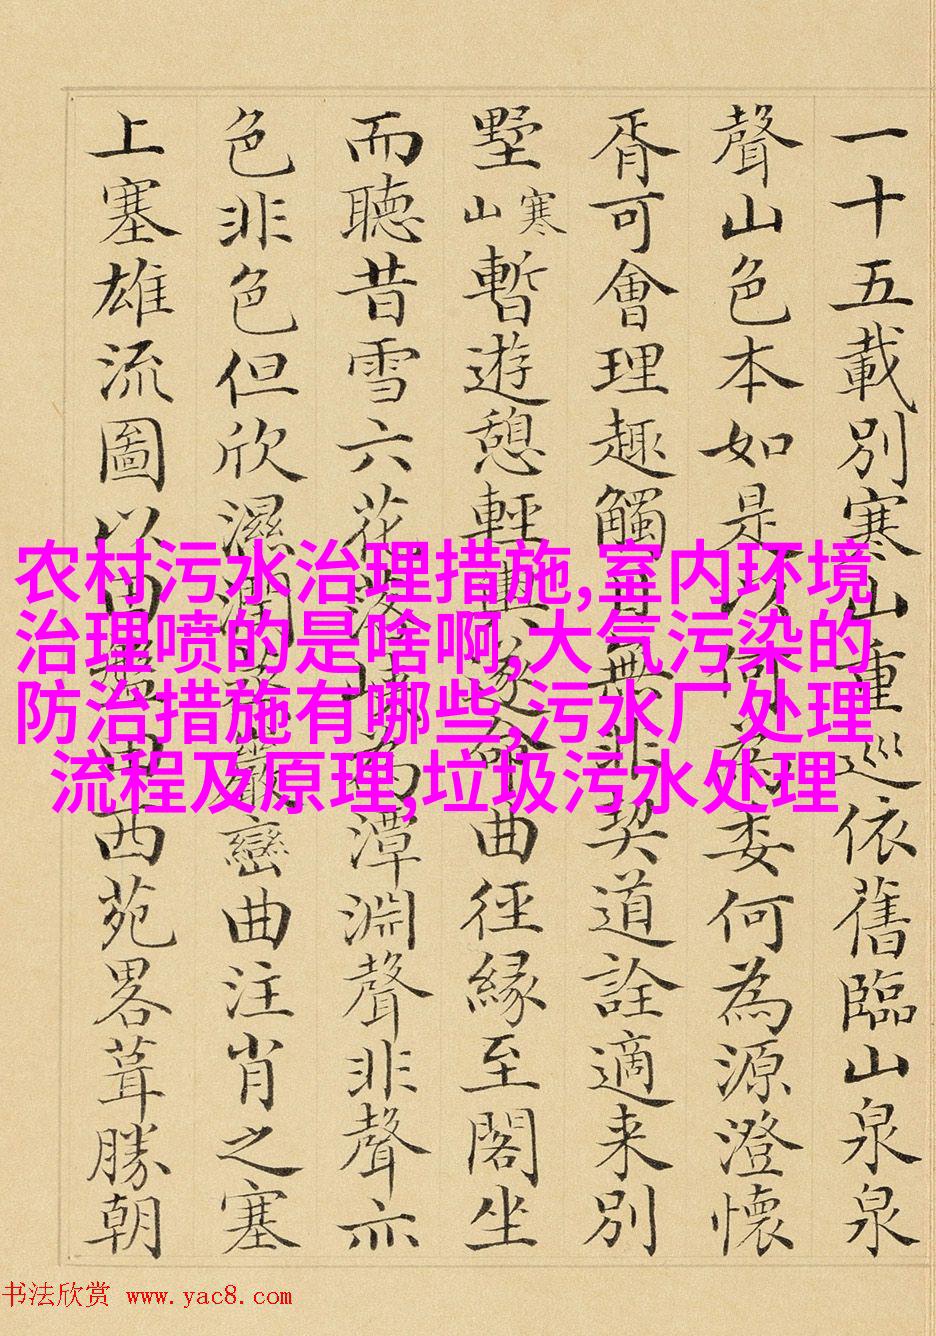 一十五載別寒山重巡依舊臨山泉泉
聲山色本如是以何為委何為源澄懷
胥可會理趣觸有無非契道詮適来別
墅寒山暫遊憩輕輿遂命曲徑縁至閣坐
而聽昔雪六花落澗為潭淵聲非聲亦
色非色但欣濕潤巖巒曲注肖之塞
上塞雄流圖以西苑畧葺勝朝
农村污水治理措施,室内环境
治理喷的是啥啊,大气污染的
防治措施有哪些,污水厂处理
流程及原理,垃圾污水处理
书法欣赏 www.yac8.com